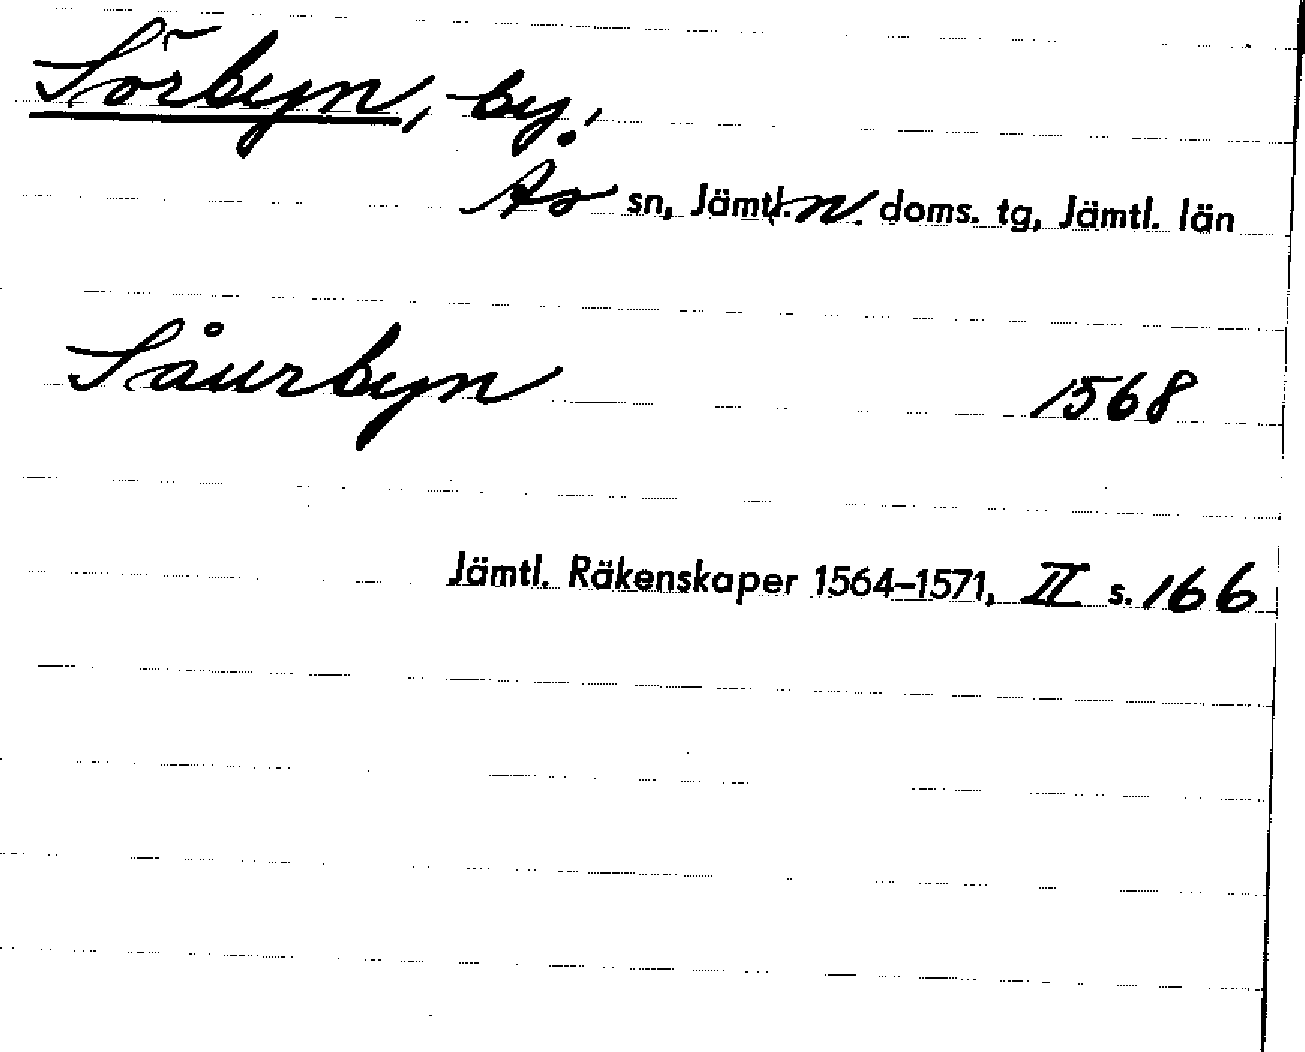 Sörbyn, by.
Ås sn, Jämtl. n. doms. tg, Jämtl. län
Såurbyn 1568
Jämtl. Räkenskaper 1564–1571, II s. 166